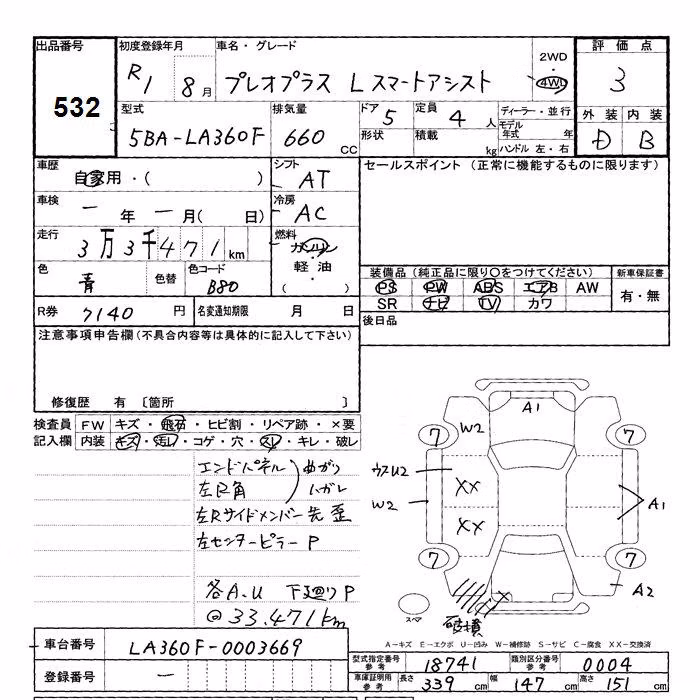 出品番号 532
初度登録年月 R1 8月
車名・グレード プレオプラス Lスマートアシスト
2WD 4WD
評価点 3
型式 5BA-LA360F
排気量 660 CC
ドア 5
定員 4人
形状 積載 kg
ディーラー・並行
モデル年式 年
ハンドル 左・右
外装 内装
D B
車歴 自家用・( )
シフト AT
セールスポイント (正常に機能するものに限ります)
車検 ー年 ー月( 日)
冷房 AC
走行 3万3千471km
燃料 ガソリン・軽油・( )
色 青 色替
色コード B80
装備品(純正品に限り○をつけてください) 新車保証書
PS PW ABS エアB AW 有・無
SR ナビ TV カワ
R券 7140円
名変通知期限 月 日
後日品
注意事項申告欄(不具合内容等は具体的に記入して下さい)
修復歴 有 〔箇所 〕
検査員 FW キズ・飛石・ヒビ割・リペア跡・×要
記入欄 内装 キズ・汚レ・コゲ・穴・スレ・キレ・破レ
エンドパネル 曲がり
左R角 ハガレ
左Rサイドメンバー先歪
左センターピラーP
各A、U 下廻りP
@33.471km
A1
7 W2 7
ウスU2 XX
W2 XX A1
7 7
A2
X
スペア 破損
A-キズ E-エクボ U-凹み W-補修跡 S-サビ C-腐食 XX-交換済
車台番号 LA360F-0003669
登録番号 ー
型式指定番号 参考 18741 類別区分番号 参考 0004
車庫証明用 参考 長さ 339cm 幅 147cm 高さ 151cm